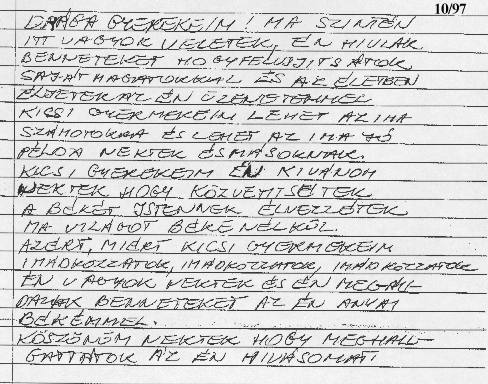 10/97
DRÁGA GYEREKEIM! MA SZINTÉN
ITT VAGYOK VELETEK, ÉN HIVLAK
BENNETEKET HOGY FELUJJITSÁTOK
SAJÁT MAGATOKKAL ÉS AZ ÉLETBEN
ÉLJETEK AZ ÉN ÜZENETEMMEL
KICSI GYERMEKEIM LEHET AZ IMA
SZÁMOTOKRA ÉS LEHET AZ IMA JÓ
PÉLDA NEKTEK ÉS MÁSOKNAK.
KICSI GYEREKEIM ÉN KIVÁNOM
NEKTEK HOGY KÖZVETITSÉTEK
A BÉKÉT ISTENNEK ÉLVEZZÉTEK
MA VILÁGOT BÉKE NÉLKÜL.
AZÉRT, MIÉRT KICSI GYERMEKEIM
IMÁDKOZZATOK, IMÁDKOZZATOK, IMÁDKOZZATOK
ÉN VAGYOK NEKTEK ÉS ÉN MEGÁL-
DALAK BENNETEKET AZ ÉN ANYAI
BÉKÉMMEL.
KÖSZÖNÖM NEKTEK HOGY MEGHALL-
GATTÁTOK AZ ÉN HIVÁSOMAT!